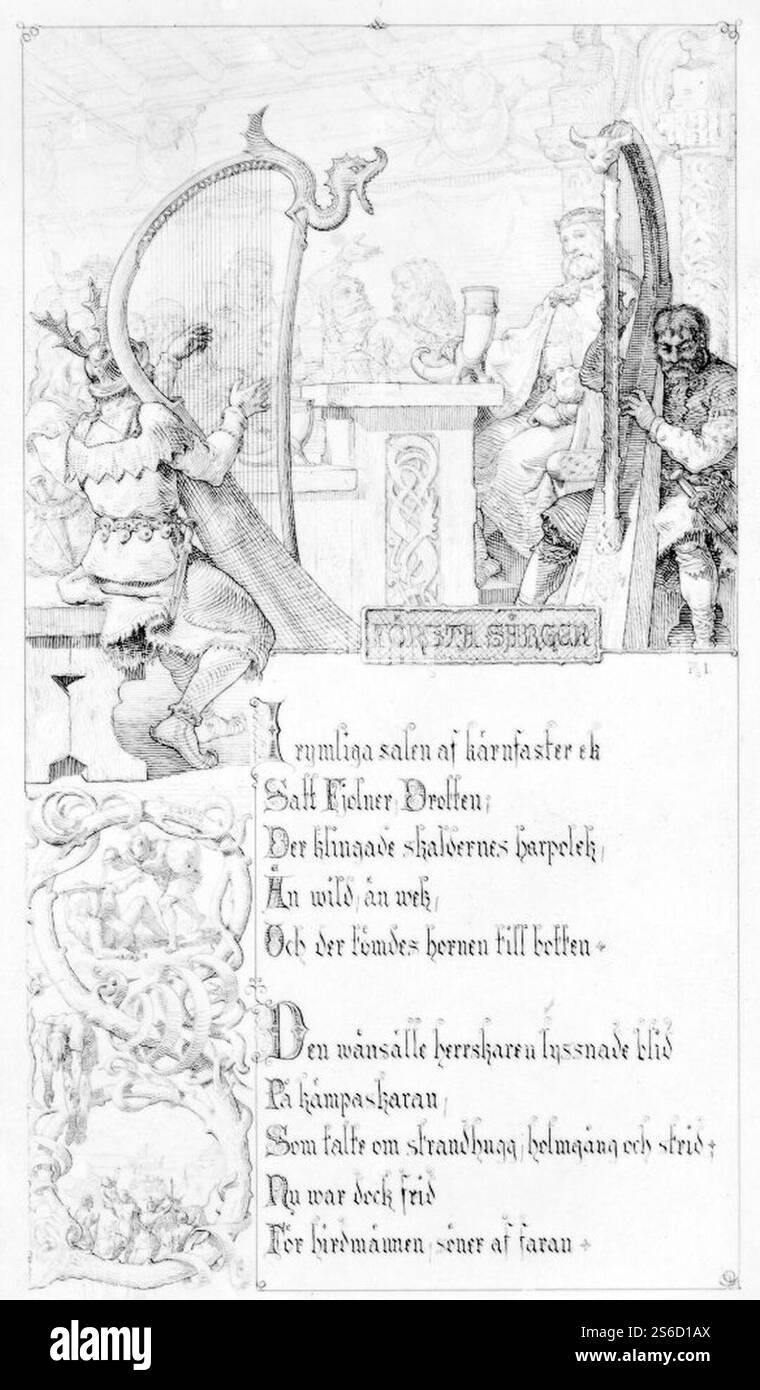 FÖRSTA SÅNGEN
Pl 1.
I rymliga salen af kärnfaster ek
Satt Fjolner, Drotten,
Der klingade skaldernes harpolek,
Än wild, än wek,
Och der tömdes hornen till botten
Den wänsälle herrskaren lyssnade blid
På kämpaskaran,
Som talte om strandhugg, holmgång och strid
Nu war dock frid
För hirdmännen, söner af faran
alamy
Image ID: 2S6D1AX
www.alamy.com